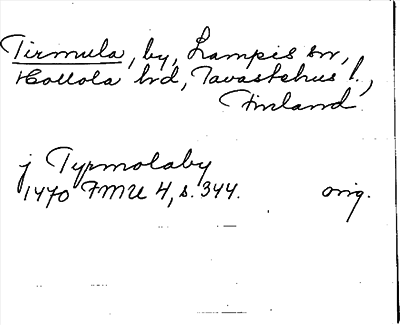 Tirmula, by, Lampis sn,
Hollola hd, Tavastehus l.,
Finland
j Tyrmolaby
1470 FMU 4, s. 344. orig.